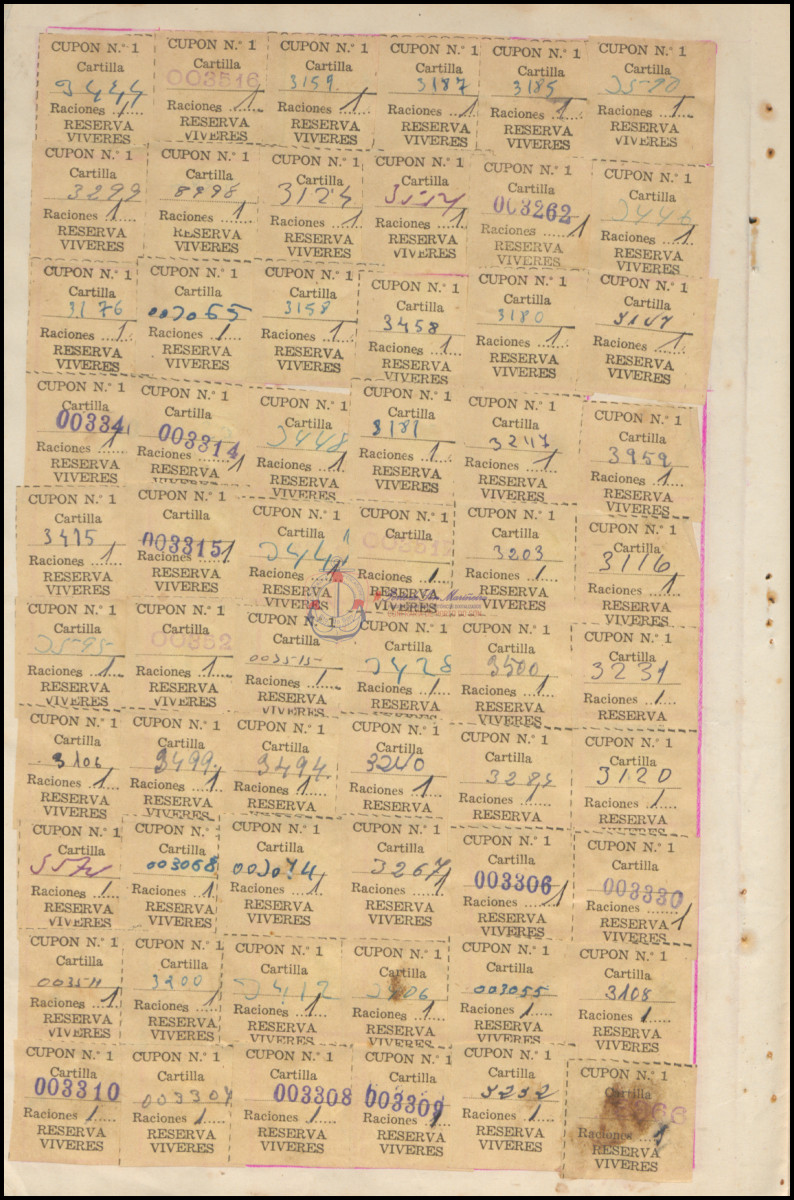 CUPON N.° 1
Cartilla
3444
Raciones 1
RESERVA
VIVERES
CUPON N.° 1
Cartilla
003516
Raciones 1
RESERVA
VIVERES
CUPON N.° 1
Cartilla
3159
Raciones 1
RESERVA
VIVERES
CUPON N.° 1
Cartilla
3187
Raciones 1
RESERVA
VIVERES
CUPON N.° 1
Cartilla
3185
Raciones 1
RESERVA
VIVERES
CUPON N.° 1
Cartilla
Raciones 1
RESERVA
VIVERES
CUPON N.° 1
Cartilla
3299
Raciones 1
RESERVA
VIVERES
CUPON N.° 1
Cartilla
Raciones 1
RESERVA
VIVERES
CUPON N.° 1
Cartilla
3124
Raciones 1
RESERVA
VIVERES
CUPON N.° 1
Cartilla
Raciones 1
RESERVA
VIVERES
CUPON N.° 1
Cartilla
003262
Raciones 1
RESERVA
VIVERES
CUPON N.° 1
Cartilla
Raciones 1
RESERVA
VIVERES
CUPON N.° 1
Cartilla
3176
Raciones 1
RESERVA
VIVERES
CUPON N.° 1
Cartilla
003065
Raciones 1
RESERVA
VIVERES
CUPON N.° 1
Cartilla
3158
Raciones 1
RESERVA
VIVERES
CUPON N.° 1
Cartilla
3458
Raciones 1
RESERVA
VIVERES
CUPON N.° 1
Cartilla
3180
Raciones 1
RESERVA
VIVERES
CUPON N.° 1
Cartilla
Raciones 1
RESERVA
VIVERES
CUPON N.° 1
Cartilla
00334
Raciones 1
RESERVA
VIVERES
CUPON N.° 1
Cartilla
003314
Raciones 1
RESERVA
VIVERES
CUPON N.° 1
Cartilla
3448
Raciones 1
RESERVA
VIVERES
CUPON N.° 1
Cartilla
3181
Raciones 1
RESERVA
VIVERES
CUPON N.° 1
Cartilla
3247
Raciones 1
RESERVA
VIVERES
CUPON N.° 1
Cartilla
3959
Raciones 1
RESERVA
VIVERES
CUPON N.° 1
Cartilla
3415
Raciones 1
RESERVA
VIVERES
CUPON N.° 1
Cartilla
003315
Raciones 1
RESERVA
VIVERES
CUPON N.° 1
Cartilla
Raciones 1
RESERVA
VIVERES
CUPON N.° 1
Cartilla
Raciones 1
RESERVA
VIVERES
CUPON N.° 1
Cartilla
3203
Raciones 1
RESERVA
VIVERES
CUPON N.° 1
Cartilla
3116
Raciones 1
RESERVA
VIVERES
CUPON N.° 1
Cartilla
Raciones 1
RESERVA
VIVERES
CUPON N.° 1
Cartilla
00352
Raciones 1
RESERVA
VIVERES
CUPON N.° 1
Cartilla
003515
Raciones 1
RESERVA
VIVERES
CUPON N.° 1
Cartilla
3428
Raciones 1
RESERVA
CUPON N.° 1
Cartilla
3500
Raciones 1
RESERVA
VIVERES
CUPON N.° 1
Cartilla
3231
Raciones 1
RESERVA
CUPON N.° 1
Cartilla
3106
Raciones 1
RESERVA
VIVERES
CUPON N.° 1
Cartilla
3499
Raciones 1
RESERVA
VIVERES
CUPON N.° 1
Cartilla
3494
Raciones 1
RESERVA
CUPON N.° 1
Cartilla
3240
Raciones 1
RESERVA
CUPON N.° 1
Cartilla
Raciones 1
RESERVA
CUPON N.° 1
Cartilla
3120
Raciones 1
RESERVA
VIVERES
CUPON N.° 1
Cartilla
Raciones 1
RESERVA
VIVERES
CUPON N.° 1
Cartilla
003068
Raciones 1
RESERVA
VIVERES
CUPON N.° 1
Cartilla
003074
Raciones 1
RESERVA
VIVERES
CUPON N.° 1
Cartilla
3267
Raciones 1
RESERVA
VIVERES
CUPON N.° 1
Cartilla
003306
Raciones 1
RESERVA
VIVERES
CUPON N.° 1
Cartilla
003330
Raciones 1
RESERVA
VIVERES
CUPON N.° 1
Cartilla
003511
Raciones 1
RESERVA
VIVERES
CUPON N.° 1
Cartilla
3200
Raciones 1
RESERVA
VIVERES
CUPON N.° 1
Cartilla
3412
Raciones 1
RESERVA
VIVERES
CUPON N.° 1
Cartilla
3406
Raciones 1
RESERVA
VIVERES
CUPON N.° 1
Cartilla
003055
Raciones 1
RESERVA
VIVERES
CUPON N.° 1
Cartilla
3108
Raciones 1
RESERVA
VIVERES
CUPON N.° 1
Cartilla
003310
Raciones 1
RESERVA
VIVERES
CUPON N.° 1
Cartilla
003307
Raciones 1
RESERVA
VIVERES
CUPON N.° 1
Cartilla
003308
Raciones 1
RESERVA
VIVERES
CUPON N.° 1
Cartilla
003309
Raciones 1
RESERVA
VIVERES
CUPON N.° 1
Cartilla
3252
Raciones 1
RESERVA
VIVERES
CUPON N.° 1
Cartilla
Raciones 1
RESERVA
VIVERES